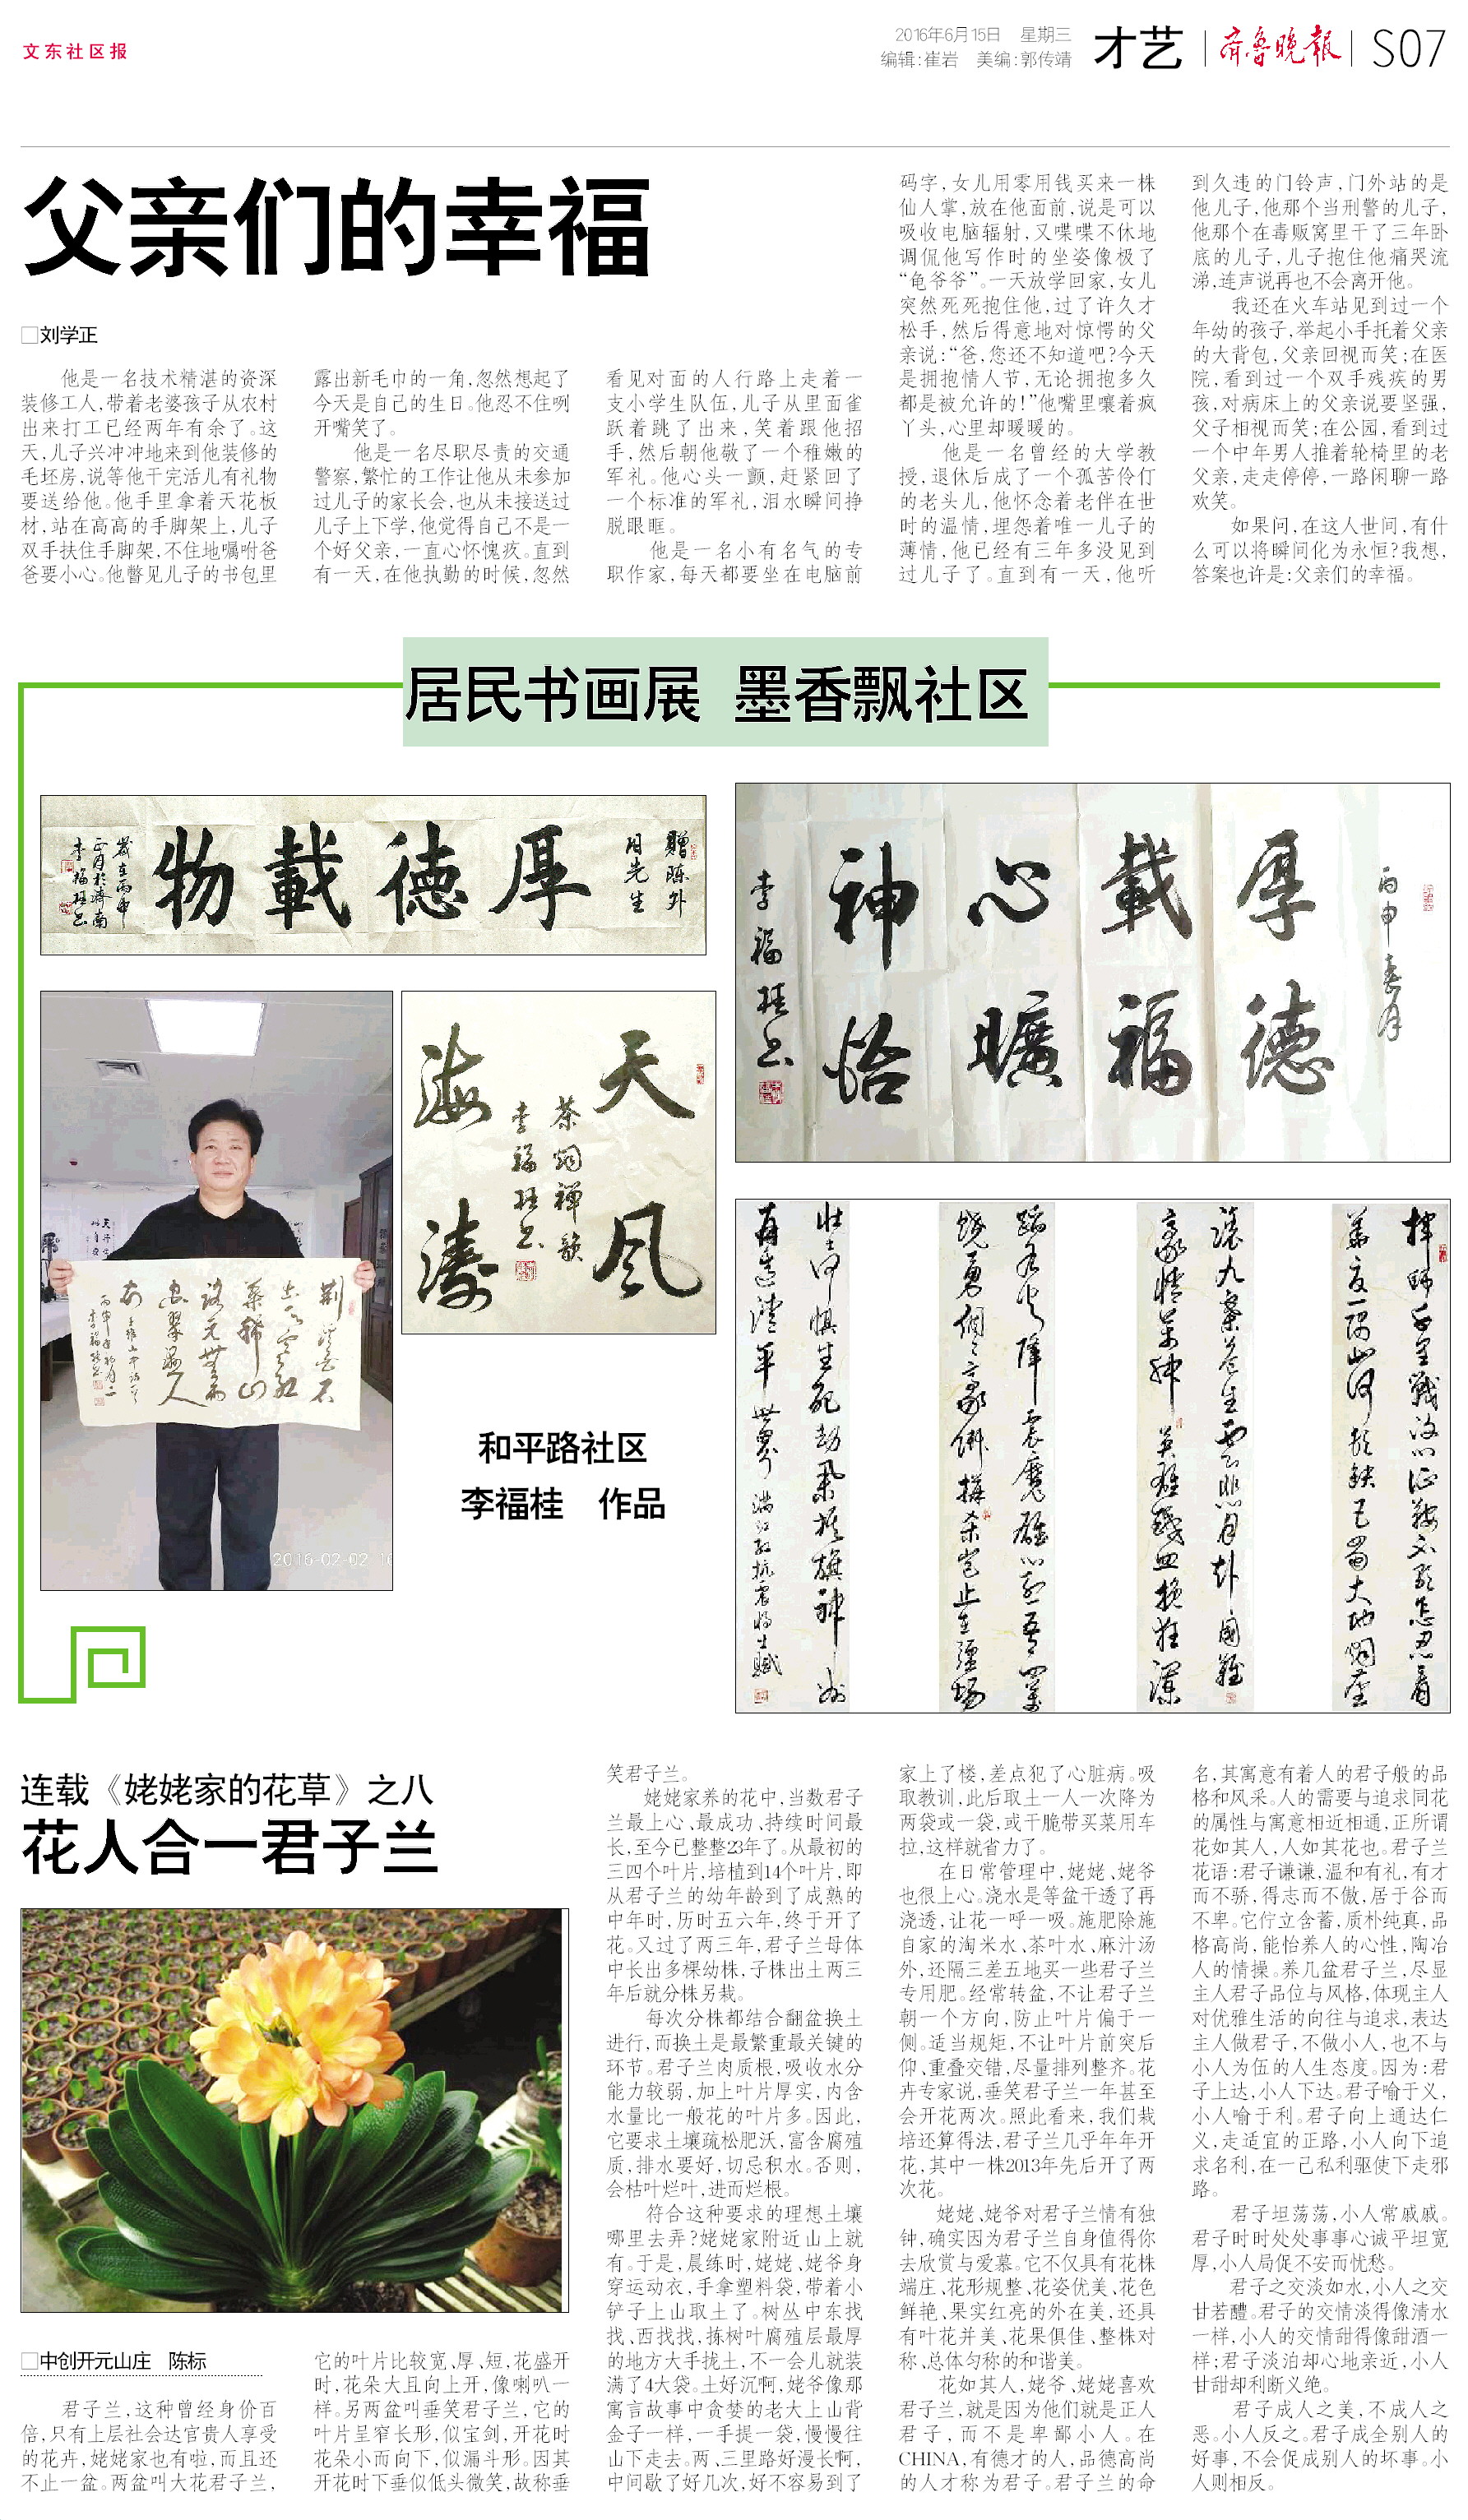 文东社区报
2016年6月15日 星期三
编辑:崔岩 美编:郭传靖
才艺
齐鲁晚报
S07
父亲们的幸福
□刘学正
他是一名技术精湛的资深
装修工人,带着老婆孩子从农村
出来打工已经两年有余了。这
天,儿子兴冲冲地来到他装修的
毛坯房,说等他干完活儿有礼物
要送给他。他手里拿着天花板
材,站在高高的手脚架上,儿子
双手扶住手脚架,不住地嘱咐爸
爸要小心。他瞥见儿子的书包里
露出新毛巾的一角,忽然想起了
今天是自己的生日。他忍不住咧
开嘴笑了。
他是一名尽职尽责的交通
警察,繁忙的工作让他从未参加
过儿子的家长会,也从未接送过
儿子上下学,他觉得自己不是一
个好父亲,一直心怀愧疚。直到
有一天,在他执勤的时候,忽然
看见对面的人行路上走着一
支小学生队伍,儿子从里面雀
跃着跳了出来,笑着跟他招
手,然后朝他敬了一个稚嫩的
军礼。他心头一颤,赶紧回了
一个标准的军礼,泪水瞬间挣
脱眼眶。
他是一名小有名气的专
职作家,每天都要坐在电脑前
码字,女儿用零用钱买来一株
仙人掌,放在他面前,说是可以
吸收电脑辐射,又喋喋不休地
调侃他写作时的坐姿像极了
“龟爷爷”。一天放学回家,女儿
突然死死抱住他,过了许久才
松手,然后得意地对惊愕的父
亲说:“爸,您还不知道吧?今天
是拥抱情人节,无论拥抱多久
都是被允许的!”他嘴里嚷着疯
丫头,心里却暖暖的。
他是一名曾经的大学教
授,退休后成了一个孤苦伶仃
的老头儿,他怀念着老伴在世
时的温情,埋怨着唯一儿子的
薄情,他已经有三年多没见到
过儿子了。直到有一天,他听
到久违的门铃声,门外站的是
他儿子,他那个当刑警的儿子,
他那个在毒贩窝里干了三年卧
底的儿子,儿子抱住他痛哭流
涕,连声说再也不会离开他。
我还在火车站见到过一个
年幼的孩子,举起小手托着父亲
的大背包,父亲回视而笑;在医
院,看到过一个双手残疾的男
孩,对病床上的父亲说要坚强,
父子相视而笑;在公园,看到过
一个中年男人推着轮椅里的老
父亲,走走停停,一路闲聊一路
欢笑。
如果问,在这人世间,有什
么可以将瞬间化为永恒?我想,
答案也许是:父亲们的幸福。
居民书画展 墨香飘社区
赠陈外
阳先生
厚德載物
歲在丙申
正月於濟南
李福桂书
丙申春月
厚德
載福
心曠
神怡
李福桂书
天风
海涛
茶烟禅韵
李福桂书
和平路社区
李福桂 作品
2016-02-02
连载《姥姥家的花草》之八
花人合一君子兰
□中创开元山庄 陈标
君子兰,这种曾经身价百
倍,只有上层社会达官贵人享受
的花卉,姥姥家也有啦,而且还
不止一盆。两盆叫大花君子兰,
它的叶片比较宽、厚、短,花盛开
时,花朵大且向上开,像喇叭一
样。另两盆叫垂笑君子兰,它的
叶片呈窄长形,似宝剑,开花时
花朵小而向下,似漏斗形。因其
开花时下垂似低头微笑,故称垂
笑君子兰。
姥姥家养的花中,当数君子
兰最上心、最成功、持续时间最
长,至今已整整23年了。从最初的
三四个叶片,培植到14个叶片,即
从君子兰的幼年龄到了成熟的
中年时,历时五六年,终于开了
花。又过了两三年,君子兰母体
中长出多棵幼株,子株出土两三
年后就分株另栽。
每次分株都结合翻盆换土
进行,而换土是最繁重最关键的
环节。君子兰肉质根,吸收水分
能力较弱,加上叶片厚实,内含
水量比一般花的叶片多。因此,
它要求土壤疏松肥沃,富含腐殖
质,排水要好,切忌积水。否则,
会枯叶烂叶,进而烂根。
符合这种要求的理想土壤
哪里去弄?姥姥家附近山上就
有。于是,晨练时,姥姥、姥爷身
穿运动衣,手拿塑料袋,带着小
铲子上山取土了。树丛中东找
找、西找找,拣树叶腐殖层最厚
的地方大手拢土,不一会儿就装
满了4大袋。土好沉啊,姥爷像那
寓言故事中贪婪的老大上山背
金子一样,一手提一袋,慢慢往
山下走去。两、三里路好漫长啊,
中间歇了好几次,好不容易到了
家上了楼,差点犯了心脏病。吸
取教训,此后取土一人一次降为
两袋或一袋,或干脆带买菜用车
拉,这样就省力了。
在日常管理中,姥姥、姥爷
也很上心。浇水是等盆干透了再
浇透,让花一呼一吸。施肥除施
自家的淘米水、茶叶水、麻汁汤
外,还隔三差五地买一些君子兰
专用肥。经常转盆,不让君子兰
朝一个方向,防止叶片偏于一
侧。适当规矩,不让叶片前突后
仰、重叠交错,尽量排列整齐。花
卉专家说,垂笑君子兰一年甚至
会开花两次。照此看来,我们栽
培还算得法,君子兰几乎年年开
花,其中一株2013年先后开了两
次花。
姥姥、姥爷对君子兰情有独
钟,确实因为君子兰自身值得你
去欣赏与爱慕。它不仅具有花株
端庄、花形规整、花姿优美、花色
鲜艳、果实红亮的外在美,还具
有叶花并美、花果俱佳、整株对
称、总体匀称的和谐美。
花如其人,姥爷、姥姥喜欢
君子兰,就是因为他们就是正人
君子,而不是卑鄙小人。在
CHINA,有德才的人,品德高尚
的人才称为君子。君子兰的命
名,其寓意有着人的君子般的品
格和风采。人的需要与追求同花
的属性与寓意相近相通,正所谓
花如其人,人如其花也。君子兰
花语:君子谦谦,温和有礼,有才
而不骄,得志而不傲,居于谷而
不卑。它伫立含蓄,质朴纯真,品
格高尚,能怡养人的心性,陶冶
人的情操。养几盆君子兰,尽显
主人君子品位与风格,体现主人
对优雅生活的向往与追求,表达
主人做君子,不做小人,也不与
小人为伍的人生态度。因为:君
子上达,小人下达。君子喻于义,
小人喻于利。君子向上通达仁
义,走适宜的正路,小人向下追
求名利,在一己私利驱使下走邪
路。
君子坦荡荡,小人常戚戚。
君子时时处处事事心诚平坦宽
厚,小人局促不安而忧愁。
君子之交淡如水,小人之交
甘若醴。君子的交情淡得像清水
一样,小人的交情甜得像甜酒一
样;君子淡泊却心地亲近,小人
甘甜却利断义绝。
君子成人之美,不成人之
恶。小人反之。君子成全别人的
好事,不会促成别人的坏事。小
人则相反。